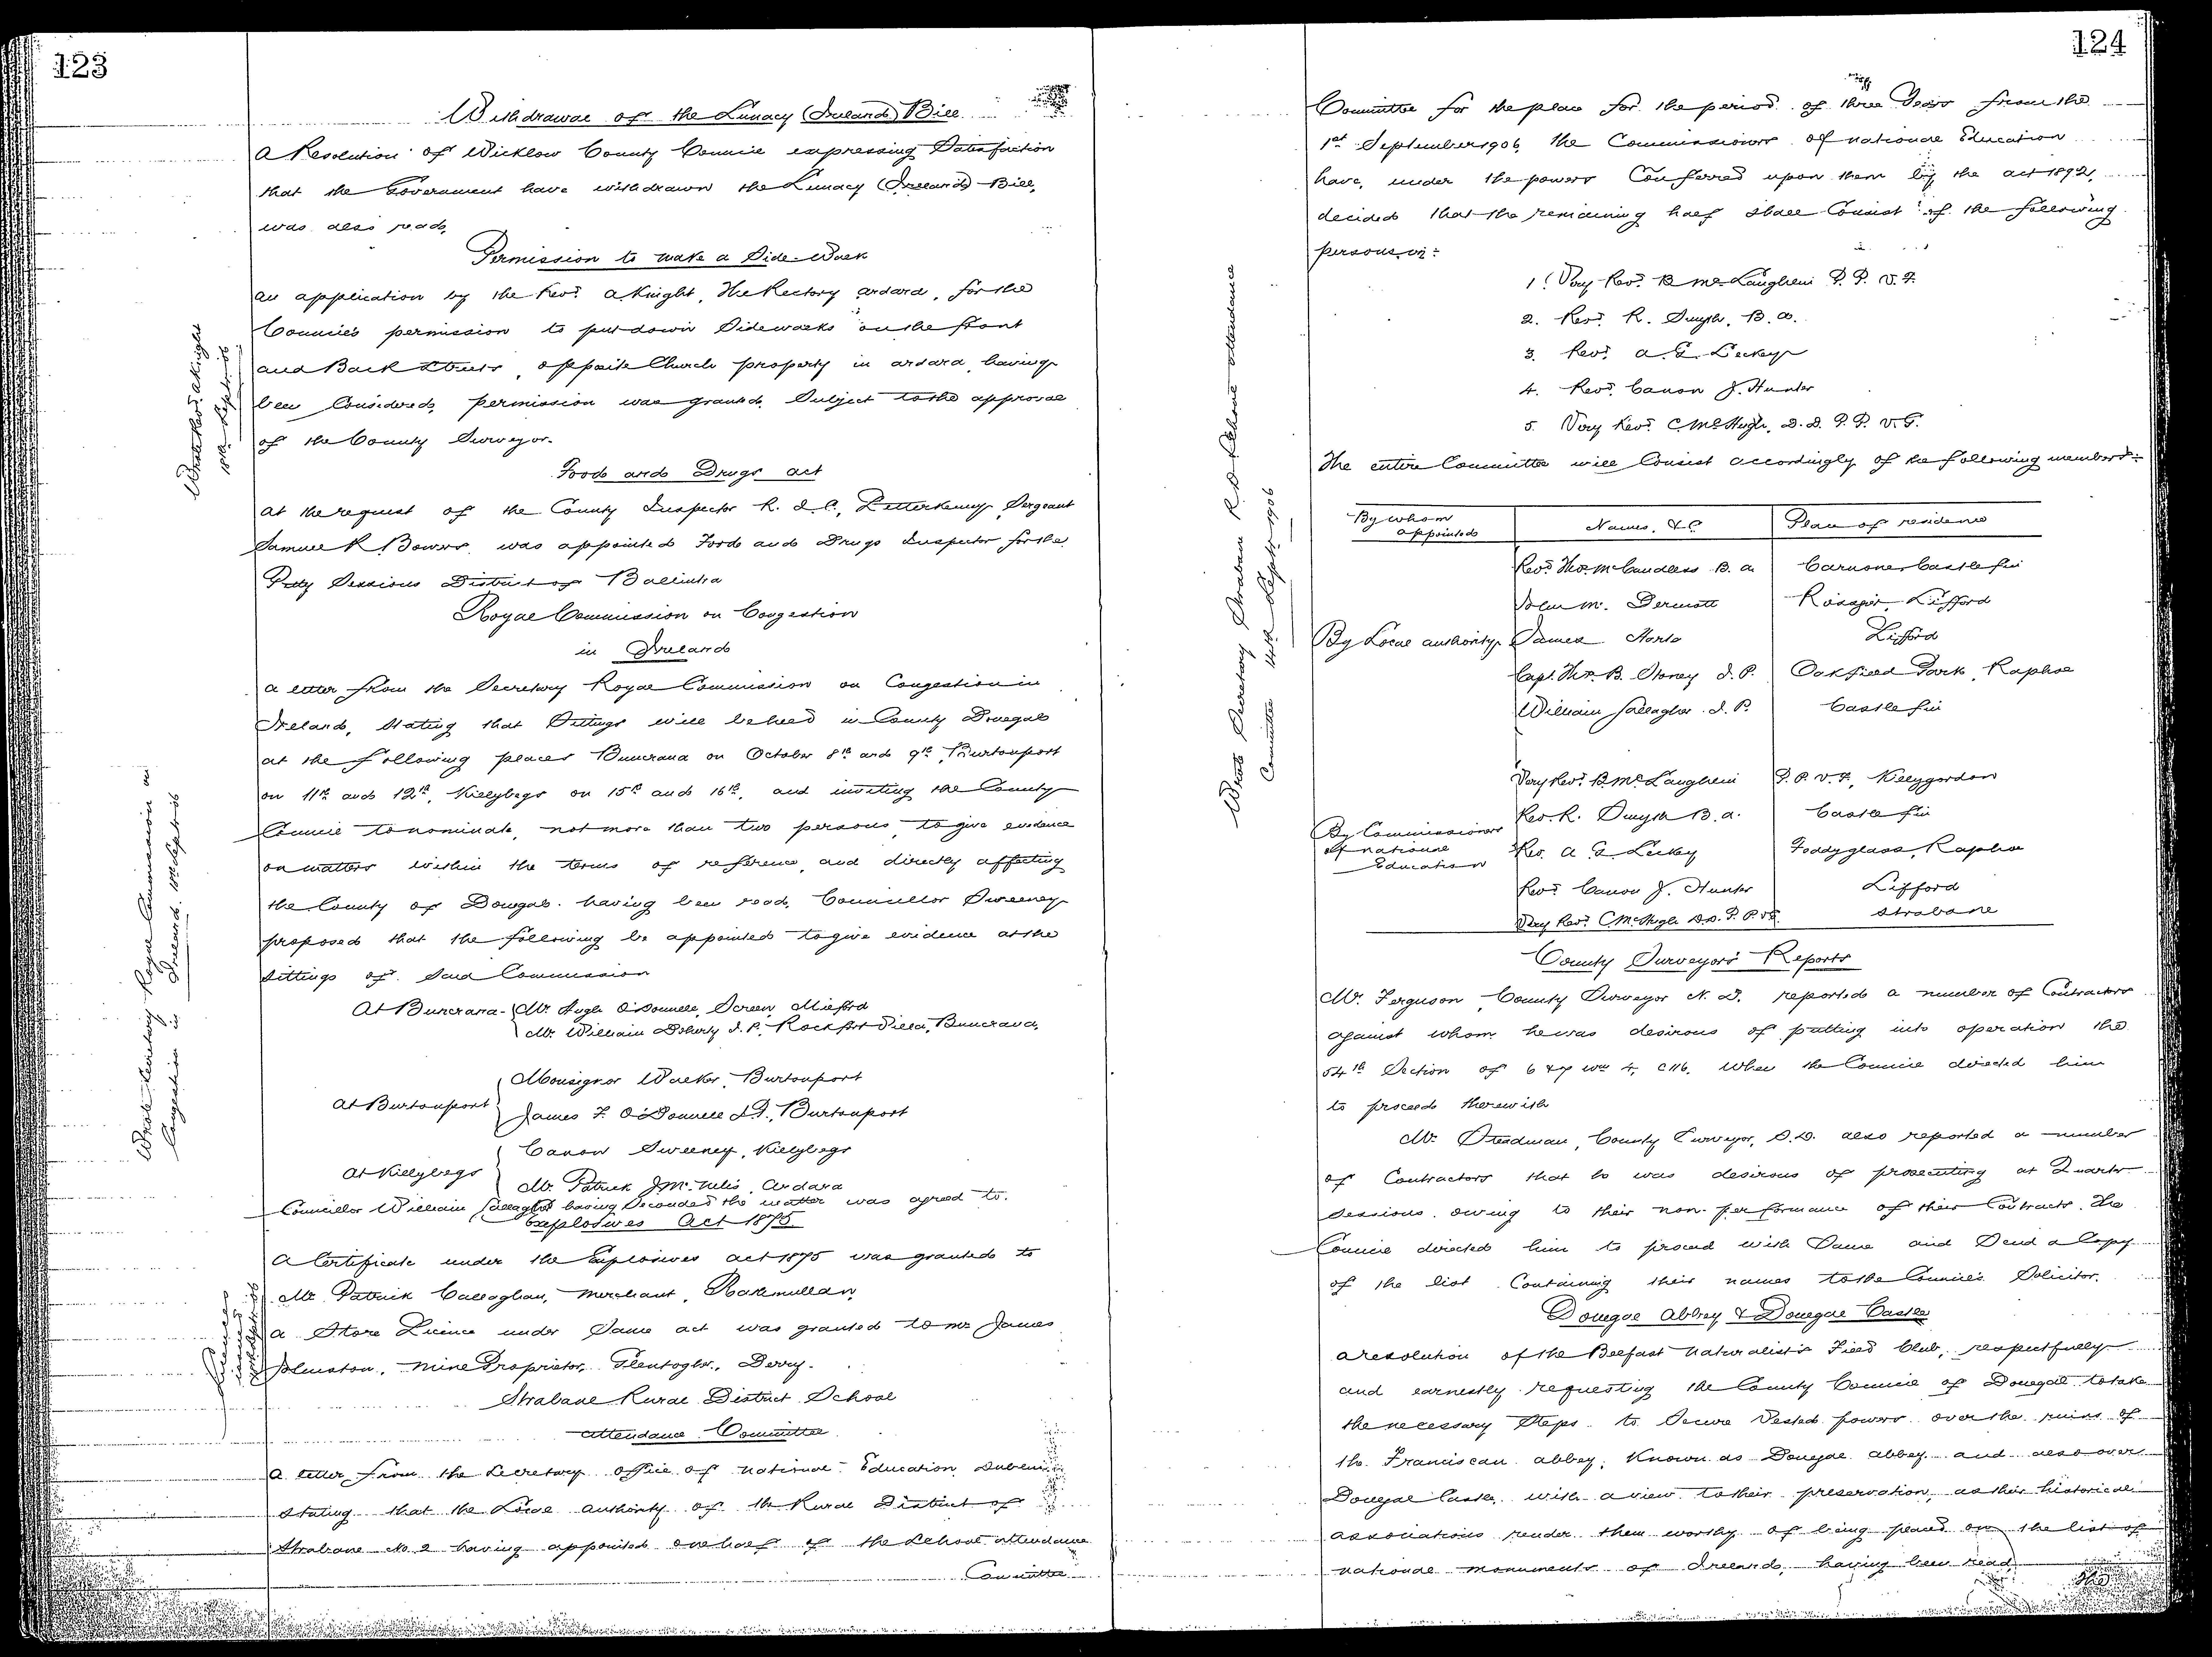 123
Withdrawal of the Lunacy (Ireland) Bill
A Resolution of Wicklow County Council expressing Satisfaction
that the Government have withdrawn the Lunacy (Ireland) Bill,
was also read.
Permission to make a Side-Walk
An application by the Revd. A Knight, The Rectory Ardara, for the
Council's permission to put down Sidewalks on the front
and Back Streets, opposite Church property in Ardara, having
been Considered, permission was granted, Subject to the approval
of the County Surveyor.
Wrote Revd. A Knight
18th Septr. 06
Food and Drugs Act
At the request of the County Inspector R. I. C., Letterkenny, Sergeant
Samuel R. Bowers was appointed Food and Drugs Inspector for the
Petty Sessions District of Ballintra
Royal Commission on Congestion
in Ireland
A letter from the Secretary Royal Commission on Congestion in
Ireland, Stating that Sittings will be held in County Donegal
at the following places Buncrana on October 8th and 9th, Burtonport
on 11th and 12th, Killybegs on 15th and 16th, and inviting the County
Council to nominate, not more than two persons, to give evidence
on matters within the terms of reference, and directly affecting
the County of Donegal having been read, Councillor Sweeney
proposed that the following be appointed to give evidence at the
Sittings of Said Commission
Wrote Secretary Royal Commission on
Congestion in Ireland. Septr 06
At Buncrana - Mr. Hugh O'Donnell, Screen, Milford
Mr. William Doherty J. P. Rockfort Villa, Buncrana,
At Burtonport Monsignor Walker, Burtonport
James F. O'Donnell J.P., Burtonport
At Killybegs Canon Sweeney, Killybegs
Mr. Patrick J. McNelis, Ardara
Councillor William Gallagher having Seconded the matter was agreed to.
Explosives Act 1875
A Certificate under the Explosives Act 1875 was granted to
Mr. Patrick Callaghan, Merchant, Rathmullan,
A Store Licence under Same Act was granted to Mr James
Johnston, Mine Proprietor, Glentogher, Derry.
Licences
issued
Strabane Rural District School
Attendance Committee
A letter from the Secretary Office of National Education, Dublin
stating that the Local Authority of the Rural District of
Strabane No. 2 having appointed one half of the School Attendance
Committee
124
Committee for the place for the period of three Years from the
1st September 1906, the Commissioners of National Education
have, under the powers Conferred upon them by the Act 1892,
decided that the remaining half shall Consist of the following
persons viz:
1. Very Revd. B McLaughlin P. P. V. F.
2. Revd. R. Smyth, B. A.
3. Revd. A. G. Leckey
4. Revd. Canon J. Hunter
5. Very Revd. C McHugh, D. D. P. P. V. G.
The entire Committee will Consist accordingly of the following members:-
Wrote Secretary Strabane R D School Attendance
Committee 14th Septr 1906
By whom appointed Names, &c. Place of residence
Revd. Thos. McCandless B. A. Carnone Castlefin
John Mc. Dermott Rossgier, Lifford
By Local Authority James Lifford
Capt. Thos. B. Stoney J. P. Oakfield Park, Raphoe
William Gallagher J. P. Castlefin
Very Revd. B. McLaughlin P. P. V. F., Killygordon
Rev. R. Smyth B. A. Castlefin
By Commissioners of National Education Rev. A G. Leckey Foddyglass, Raphoe
Revd. Canon J. Hunter Lifford
Very Revd. C. McHugh D.D. P. P. V.G. Strabane
County Surveyors' Reports
Mr. Ferguson, County Surveyor N. D. reported a number of Contractors
against whom he was desirous of putting into operation the
54th Section of 6 & 7 Wm 4, C116. When the Council directed him
to proceed therewith
Mr. Steadman, County Surveyor, S. D. also reported a number
of Contractors that he was desirous of prosecuting at Quarter
Sessions owing to their non-performance of their Contracts. The
Council directed him to proceed with Same and Send a Copy
of the list Containing their names to the Council's Solicitor.
Donegal Abbey & Donegal Castle
A resolution of the Belfast Naturalists Field Club, respectfully
and earnestly requesting the County Council of Donegal to take
the necessary Steps to Secure Vested powers over the ruins of
the Franciscan Abbey, Known as Donegal Abbey and also over
Donegal Castle, with a view to their preservation, as their historical
associations render them worthy of being placed on the list of
National Monuments of Ireland, having been read
The